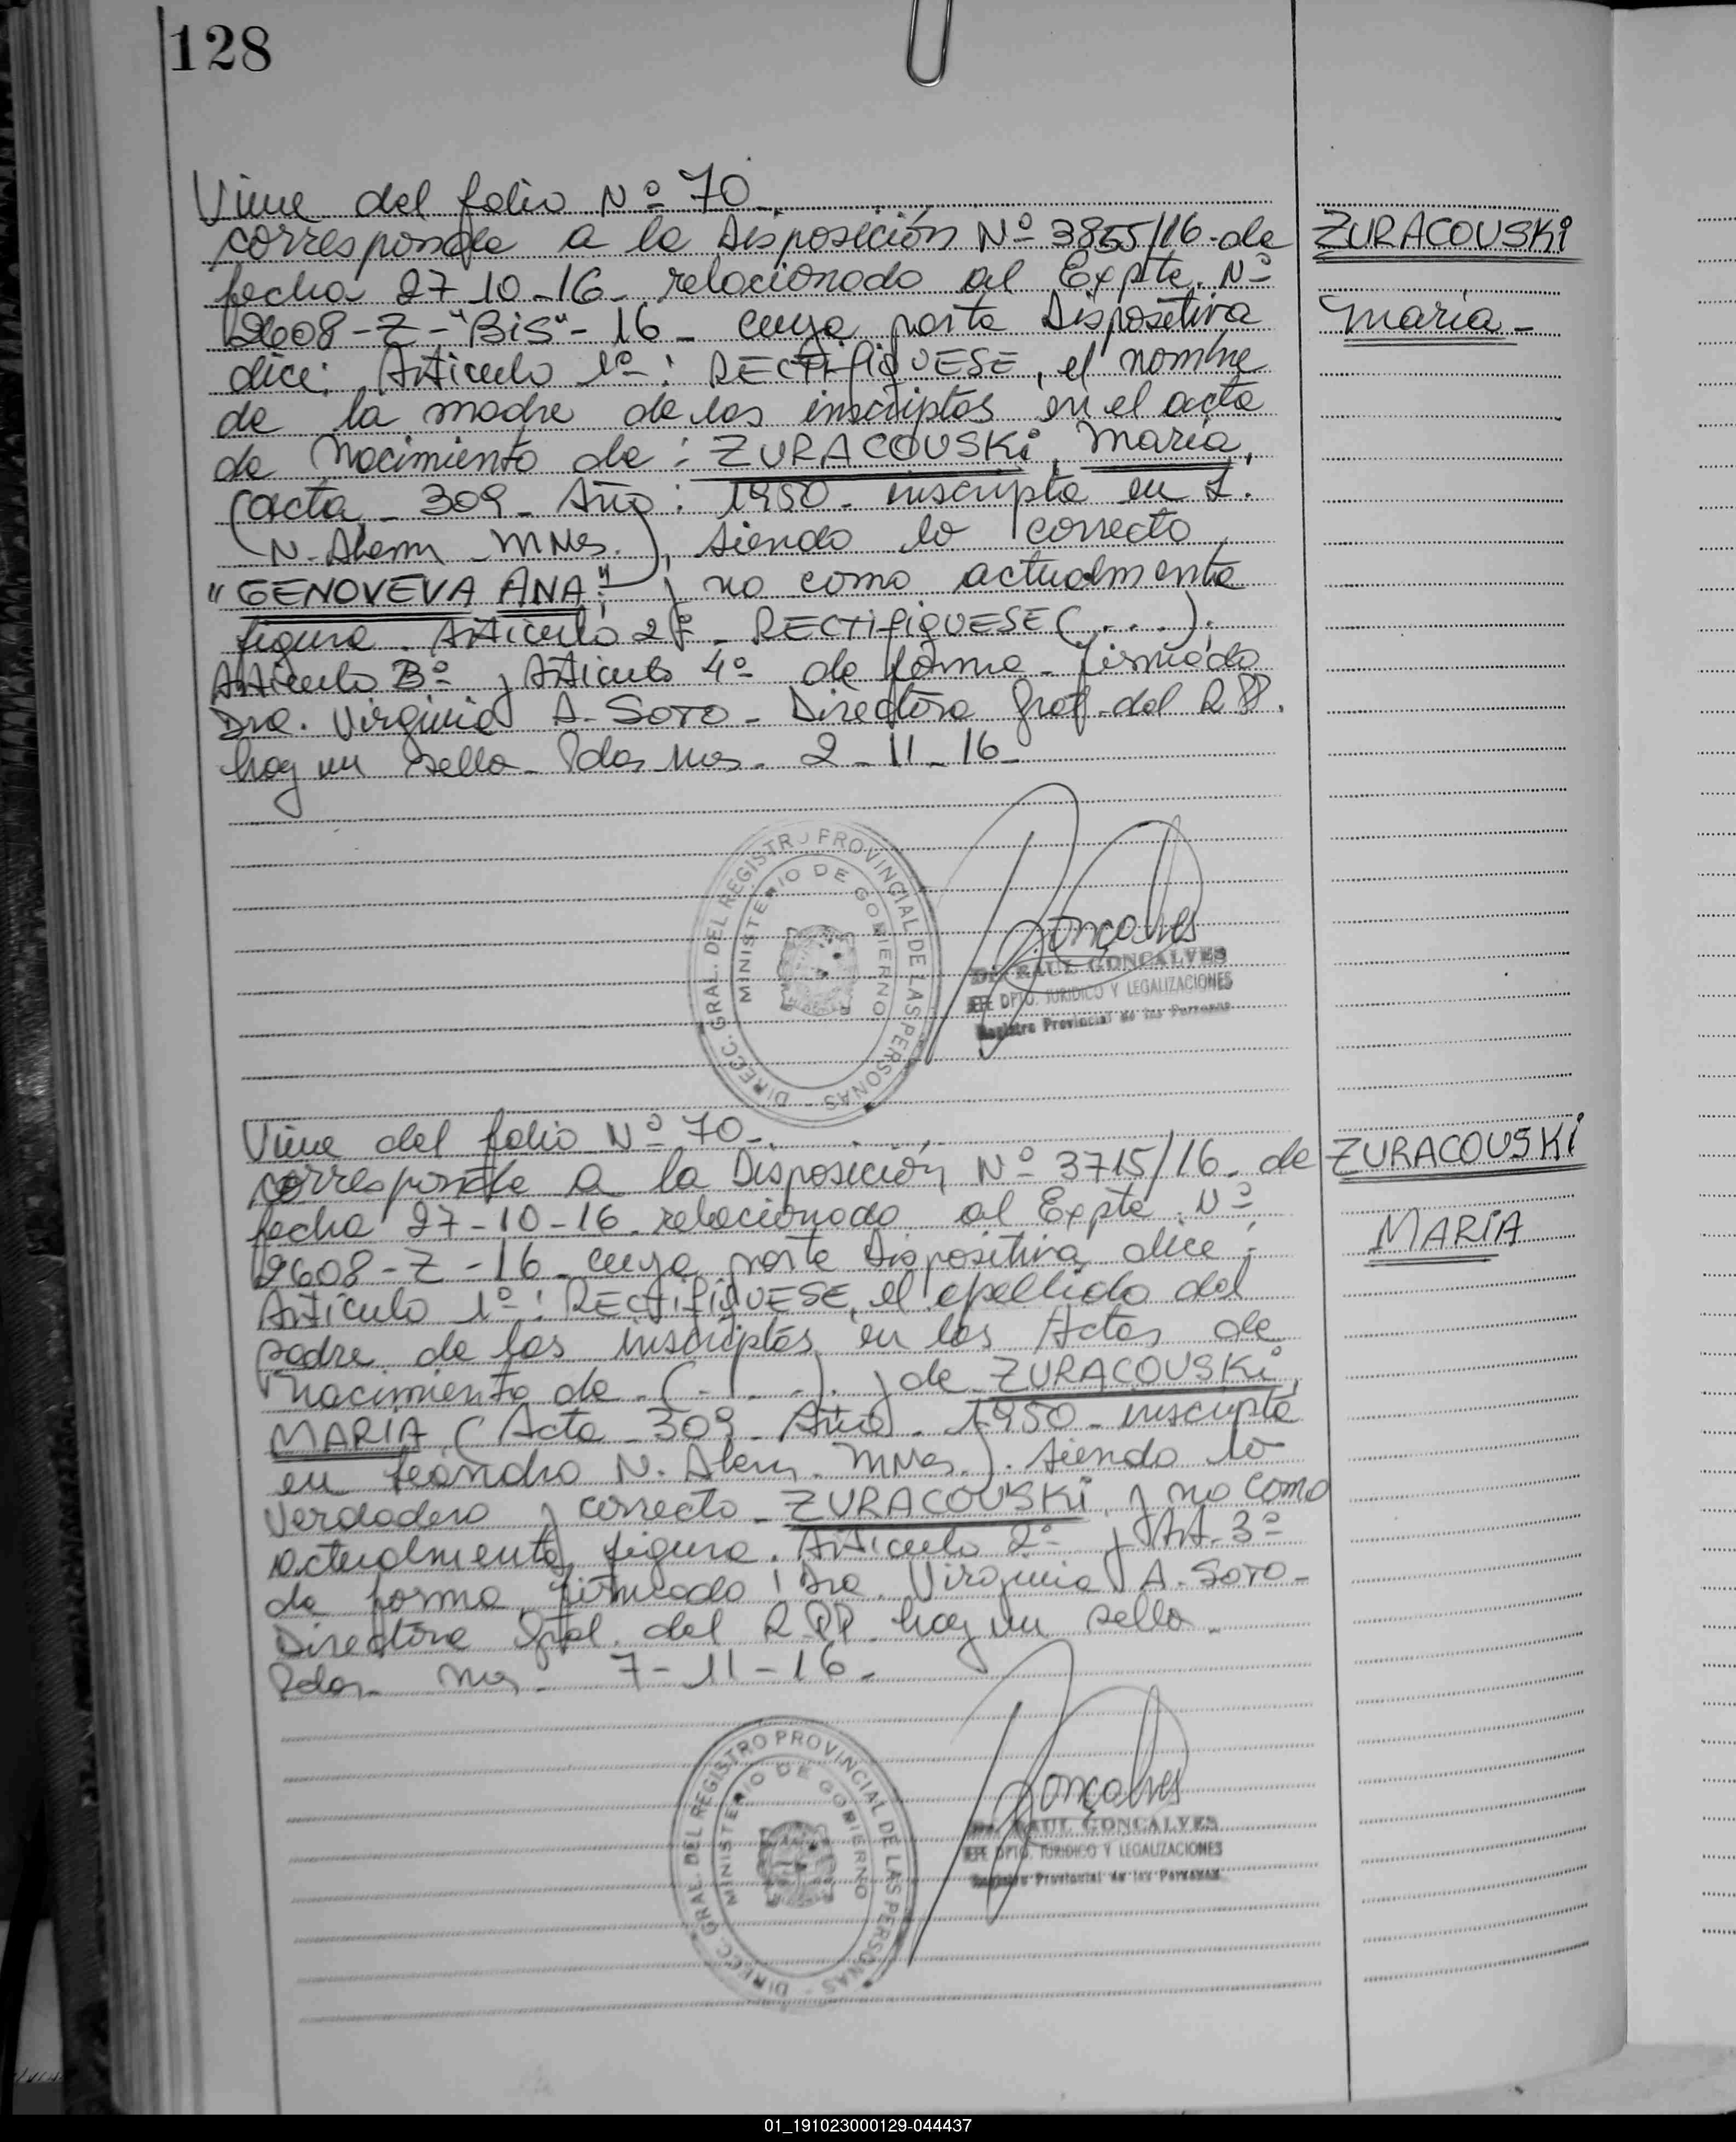 128
Viene del folio Nº 70-
corresponde a la Disposición Nº 3855/16 - de
ZURACOUSKi
fecha 27-10-16- relacionado al Expte. Nº
2608-Z-"BiS"-16- cuya parte Dispositiva
María-
dice: Artículo 1º: RECTIFIQUESE, el nombre
de la madre de los inscriptos en el acta
de Nacimiento de: ZURACOUSKi, María,
(acta - 309 - Año: 1950 - inscripta en L.
N. Alem - MNes.), siendo lo correcto
"GENOVEVA ANA" y no como actualmente
figura. Artículo 2º - RECTIFIQUESE (....);
Artículo 3º y Artículo 4º de forma - firmado
Dra. Virginia A. SOTO - Directora Gral. del RPP.
hay un sello - Pdas Mnes. 2-11-16-
DIREC. GRAL. DEL REGISTRO PROVINCIAL DE LAS PERSONAS
MINISTERIO DE GOBIERNO
Gonçalves
Dr. RAUL GONCALVES
JEFE DPTO. JURIDICO Y LEGALIZACIONES
Registro Provincial de las Personas
Viene del folio Nº 70-
corresponde a la Disposición Nº 3715/16- de
ZURACOUSKi
fecha 27-10-16- relacionado al Expte. Nº
MARíA
2608-Z-16- cuya parte Dispositiva dice:
Artículo 1º: RECTIFIQUESE, el apellido del
padre de los inscriptos en las Actas de
Nacimiento de (....) y de ZURACOUSKi,
MARíA (Acta - 309 - Año - 1950 - inscripta
en Leandro N. Alem - MNes.). siendo lo
verdadero y correcto - ZURACOUSKi, y no como
actualmente figura. Artículo 2º y Art. 3º
de forma, firmado: Dra. Virginia A. SOTO -
Directora Gral. del RPP. hay un sello -
Pdas - Mnes - 7-11-16-
DIREC. GRAL. DEL REGISTRO PROVINCIAL DE LAS PERSONAS
MINISTERIO DE GOBIERNO
Gonçalves
Dr. RAUL GONCALVES
JEFE DPTO. JURIDICO Y LEGALIZACIONES
Registro Provincial de las Personas
01_191023000129-044437